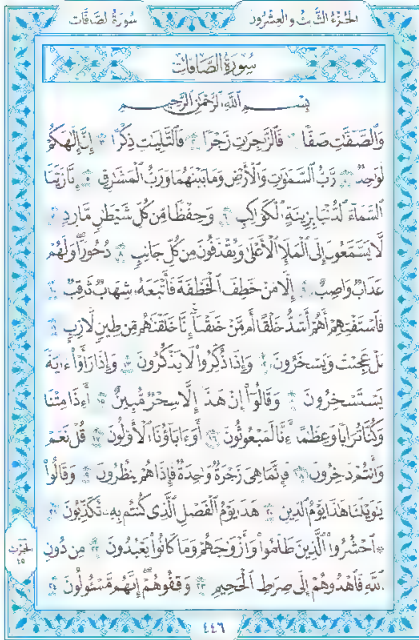 سورة الصافات
الجزء الثالث والعشرون
سُورَةُ الصَّافَّاتِ
بِسْمِ اللَّهِ الرَّحْمَٰنِ الرَّحِيمِ
وَالصَّافَّاتِ صَفًّا ١ فَالزَّاجِرَاتِ زَجْرًا ٢ فَالتَّالِيَاتِ ذِكْرًا ٣ إِنَّ إِلَٰهَكُمْ
لَوَاحِدٌ ٤ رَبُّ السَّمَاوَاتِ وَالْأَرْضِ وَمَا بَيْنَهُمَا وَرَبُّ الْمَشَارِقِ ٥ إِنَّا زَيَّنَّا
السَّمَاءَ الدُّنْيَا بِزِينَةٍ الْكَوَاكِبِ ٦ وَحِفْظًا مِنْ كُلِّ شَيْطَانٍ مَارِدٍ ٧
لَا يَسَّمَّعُونَ إِلَى الْمَلَإِ الْأَعْلَىٰ وَيُقْذَفُونَ مِنْ كُلِّ جَانِبٍ ٨ دُحُورًا وَلَهُمْ
عَذَابٌ وَاصِبٌ ٩ إِلَّا مَنْ خَطِفَ الْخَطْفَةَ فَأَتْبَعَهُ شِهَابٌ ثَاقِبٌ ١٠
فَاسْتَفْتِهِمْ أَهُمْ أَشَدُّ خَلْقًا أَمْ مَنْ خَلَقْنَا إِنَّا خَلَقْنَاهُمْ مِنْ طِينٍ لَازِبٍ ١١
بَلْ عَجِبْتَ وَيَسْخَرُونَ ١٢ وَإِذَا ذُكِّرُوا لَا يَذْكُرُونَ ١٣ وَإِذَا رَأَوْا ءَايَةً
يَسْتَسْخِرُونَ ١٤ وَقَالُوا إِنْ هَٰذَا إِلَّا سِحْرٌ مُبِينٌ ١٥ أَءِذَا مِتْنَا
وَكُنَّا تُرَابًا وَعِظَامًا أَءِنَّا لَمَبْعُوثُونَ ١٦ أَوَءَابَاؤُنَا الْأَوَّلُونَ ١٧ قُلْ نَعَمْ
وَأَنْتُمْ دَاخِرُونَ ١٨ فَإِنَّمَا هِيَ زَجْرَةٌ وَاحِدَةٌ فَإِذَا هُمْ يَنْظُرُونَ ١٩ وَقَالُوا
يَا وَيْلَنَا هَٰذَا يَوْمُ الدِّينِ ٢٠ هَٰذَا يَوْمُ الْفَصْلِ الَّذِي كُنْتُمْ بِهِ تُكَذِّبُونَ ٢١
احْشُرُوا الَّذِينَ ظَلَمُوا وَأَزْوَاجَهُمْ وَمَا كَانُوا يَعْبُدُونَ ٢٢ مِنْ دُونِ
اللَّهِ فَاهْدُوهُمْ إِلَىٰ صِرَاطِ الْجَحِيمِ ٢٣ وَقِفُوهُمْ إِنَّهُمْ مَسْئُولُونَ ٢٤
الحزب
٤٥
٤٤٦